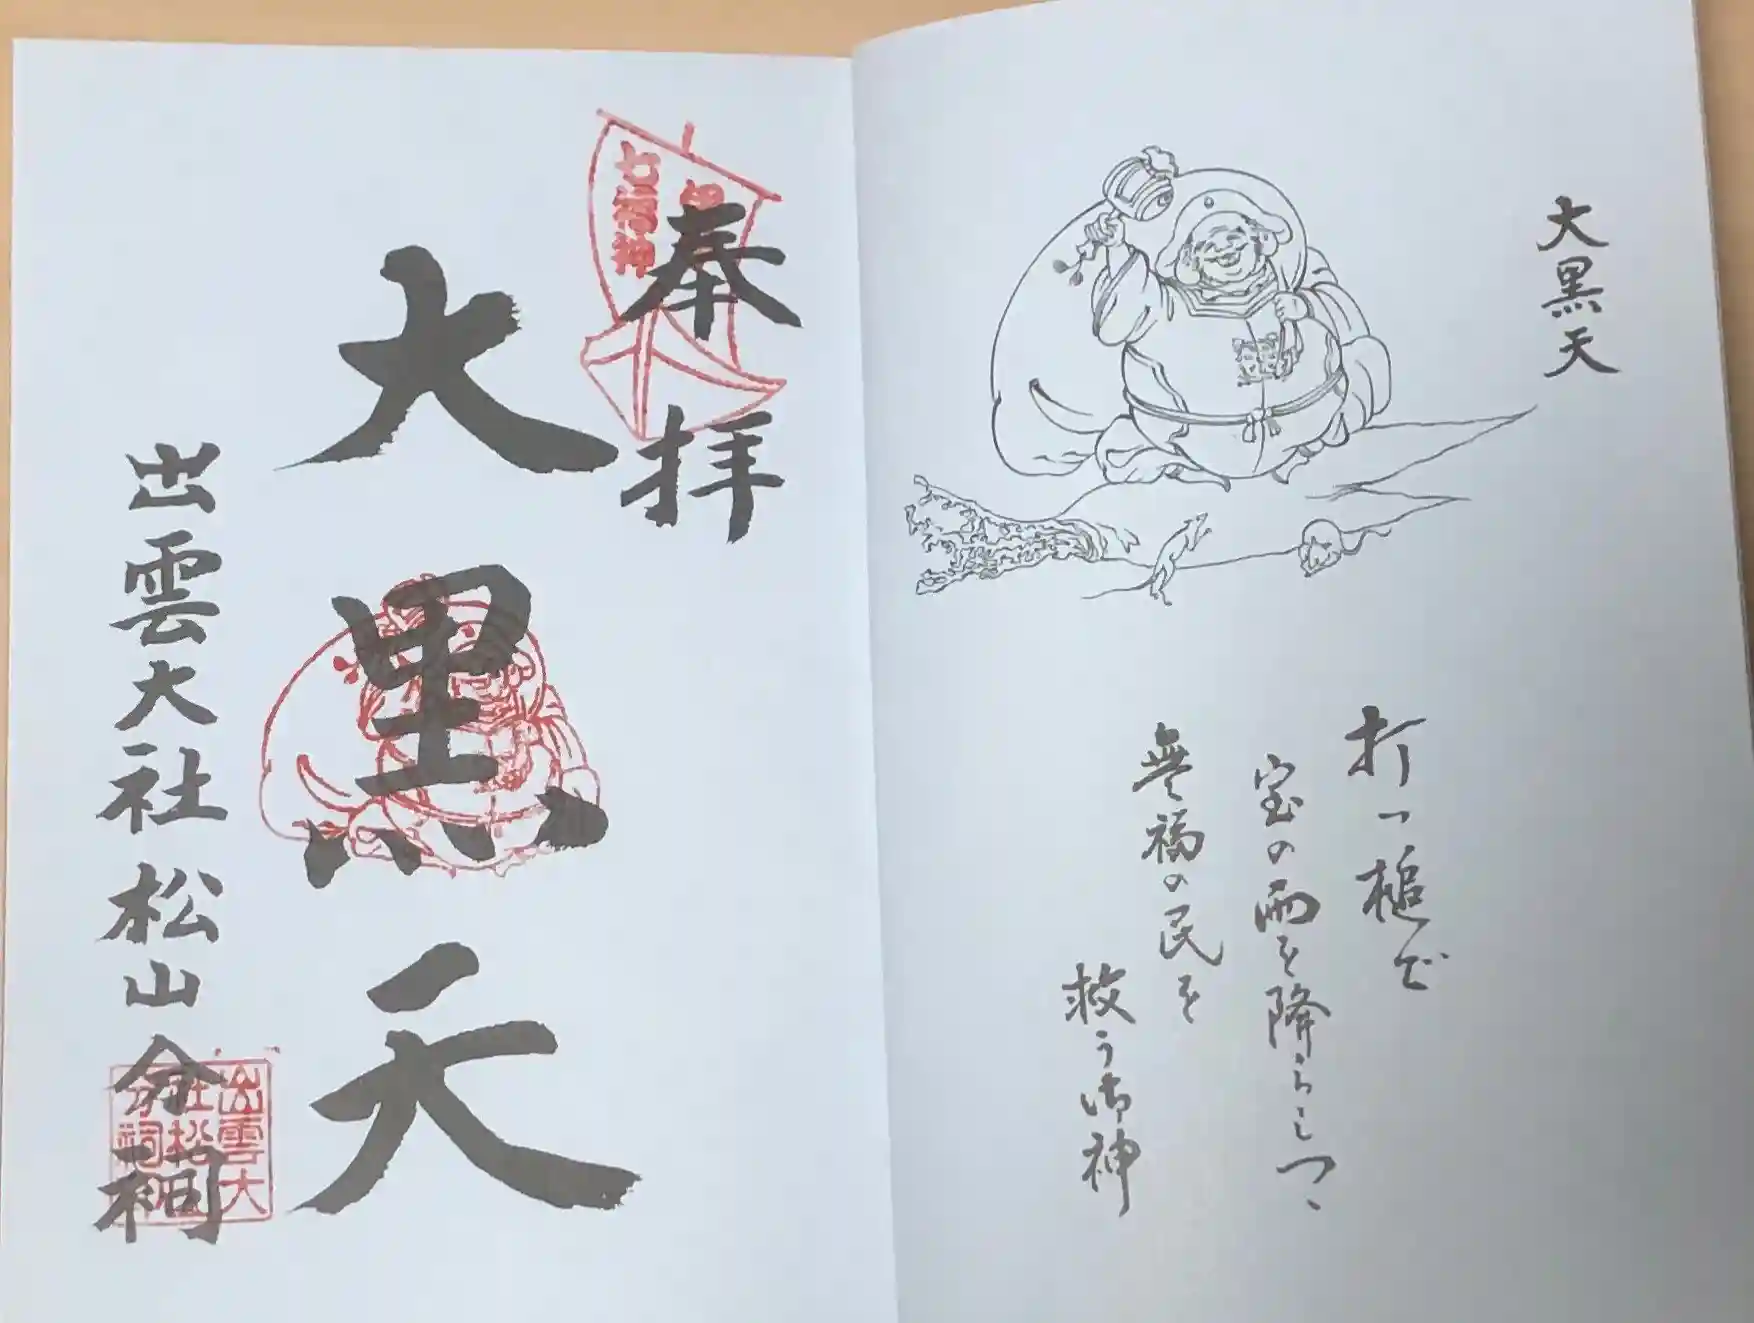 大黒天
打つ槌で
宝の雨を降らしつゝ
無福の民を
救う御神
奉拝
七福神
大黒天
出雲大社松山分祠
出雲大
社松山
分祠